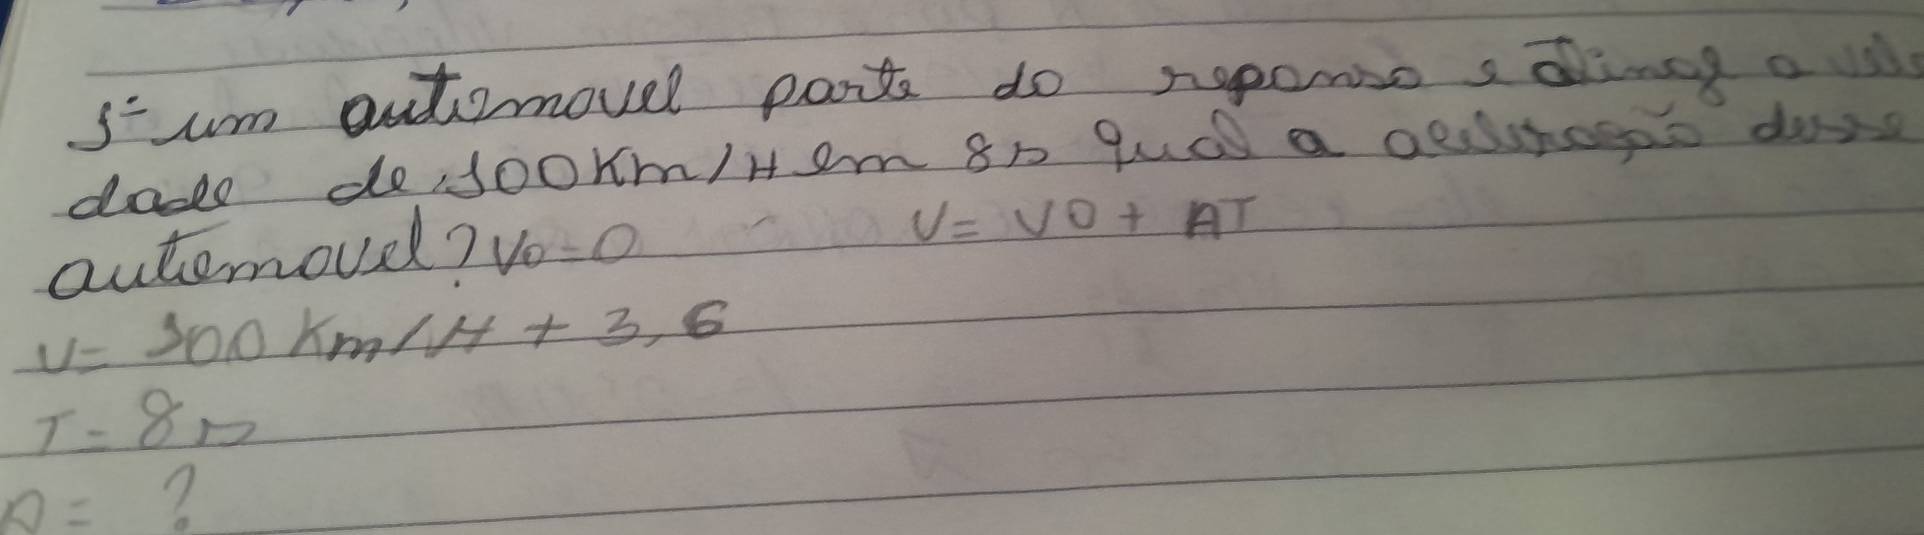 1= um automovel parte do repouso e atinge a velo
dade de 100Km/H em 8s qual a aceleração desse
automovel? V0=0 V= V0 + AT
V= 100 Km/H ÷ 3,6
T= 8s
A= ?